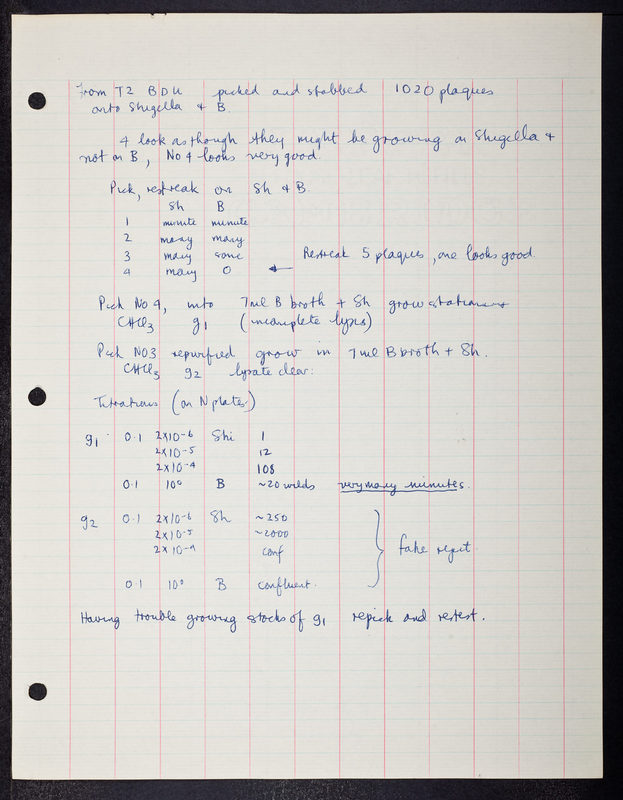 From T2 BDU picked and stabbed 1020 plaques
onto Shigella & B.
4 look as though they might be growing on Shigella &
not on B, No 4 looks very good.
Pick, restreak on Sh & B.
Sh B
1 minute minute
2 many many
3 many some
4 many 0 ← Restreak 5 plaques, one looks good.
Pick No 4, into 7ml B broth + Sh grow stationary
CHCl3 g1 (incomplete lysis)
Pick NO3 repurified grow in 7ml B broth + Sh.
CHCl3 g2 lysate clear.
Titrations (on N plates)
g1 0.1 2x10-6 Shi 1
2x10-5 12
2x10-4 108
0.1 10° B ~20 wilds very many minutes.
g2 0.1 2x10-6 Sh ~250
2x10-5 ~2000
2x10-4 conf
fake reject.
0.1 10° B confluent.
Having trouble growing stocks of g1 repick and retest.